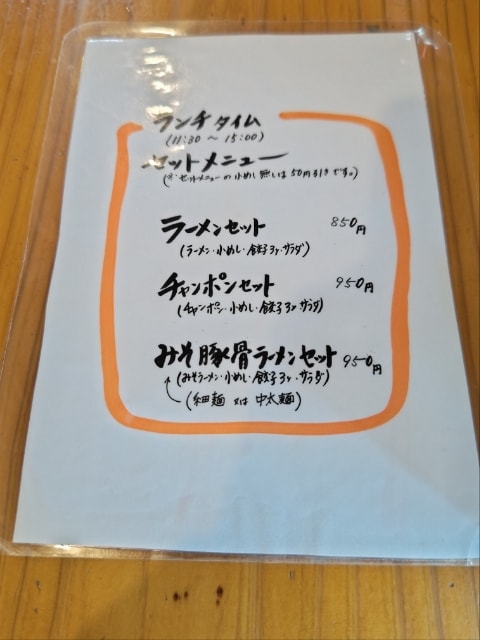 ランチタイム
(11:30 ～ 15:00)
セットメニュー
(※セットメニューの小めし無しは50円引きです。)
ラーメンセット 850円
(ラーメン・小めし・餃子3ヶ・サラダ)
チャンポンセット 950円
(チャンポン・小めし・餃子3ヶ サラダ)
みそ豚骨ラーメンセット 950円
(みそラーメン・小めし・餃子3ヶ・サラダ)
(細麺 又は 中太麺)